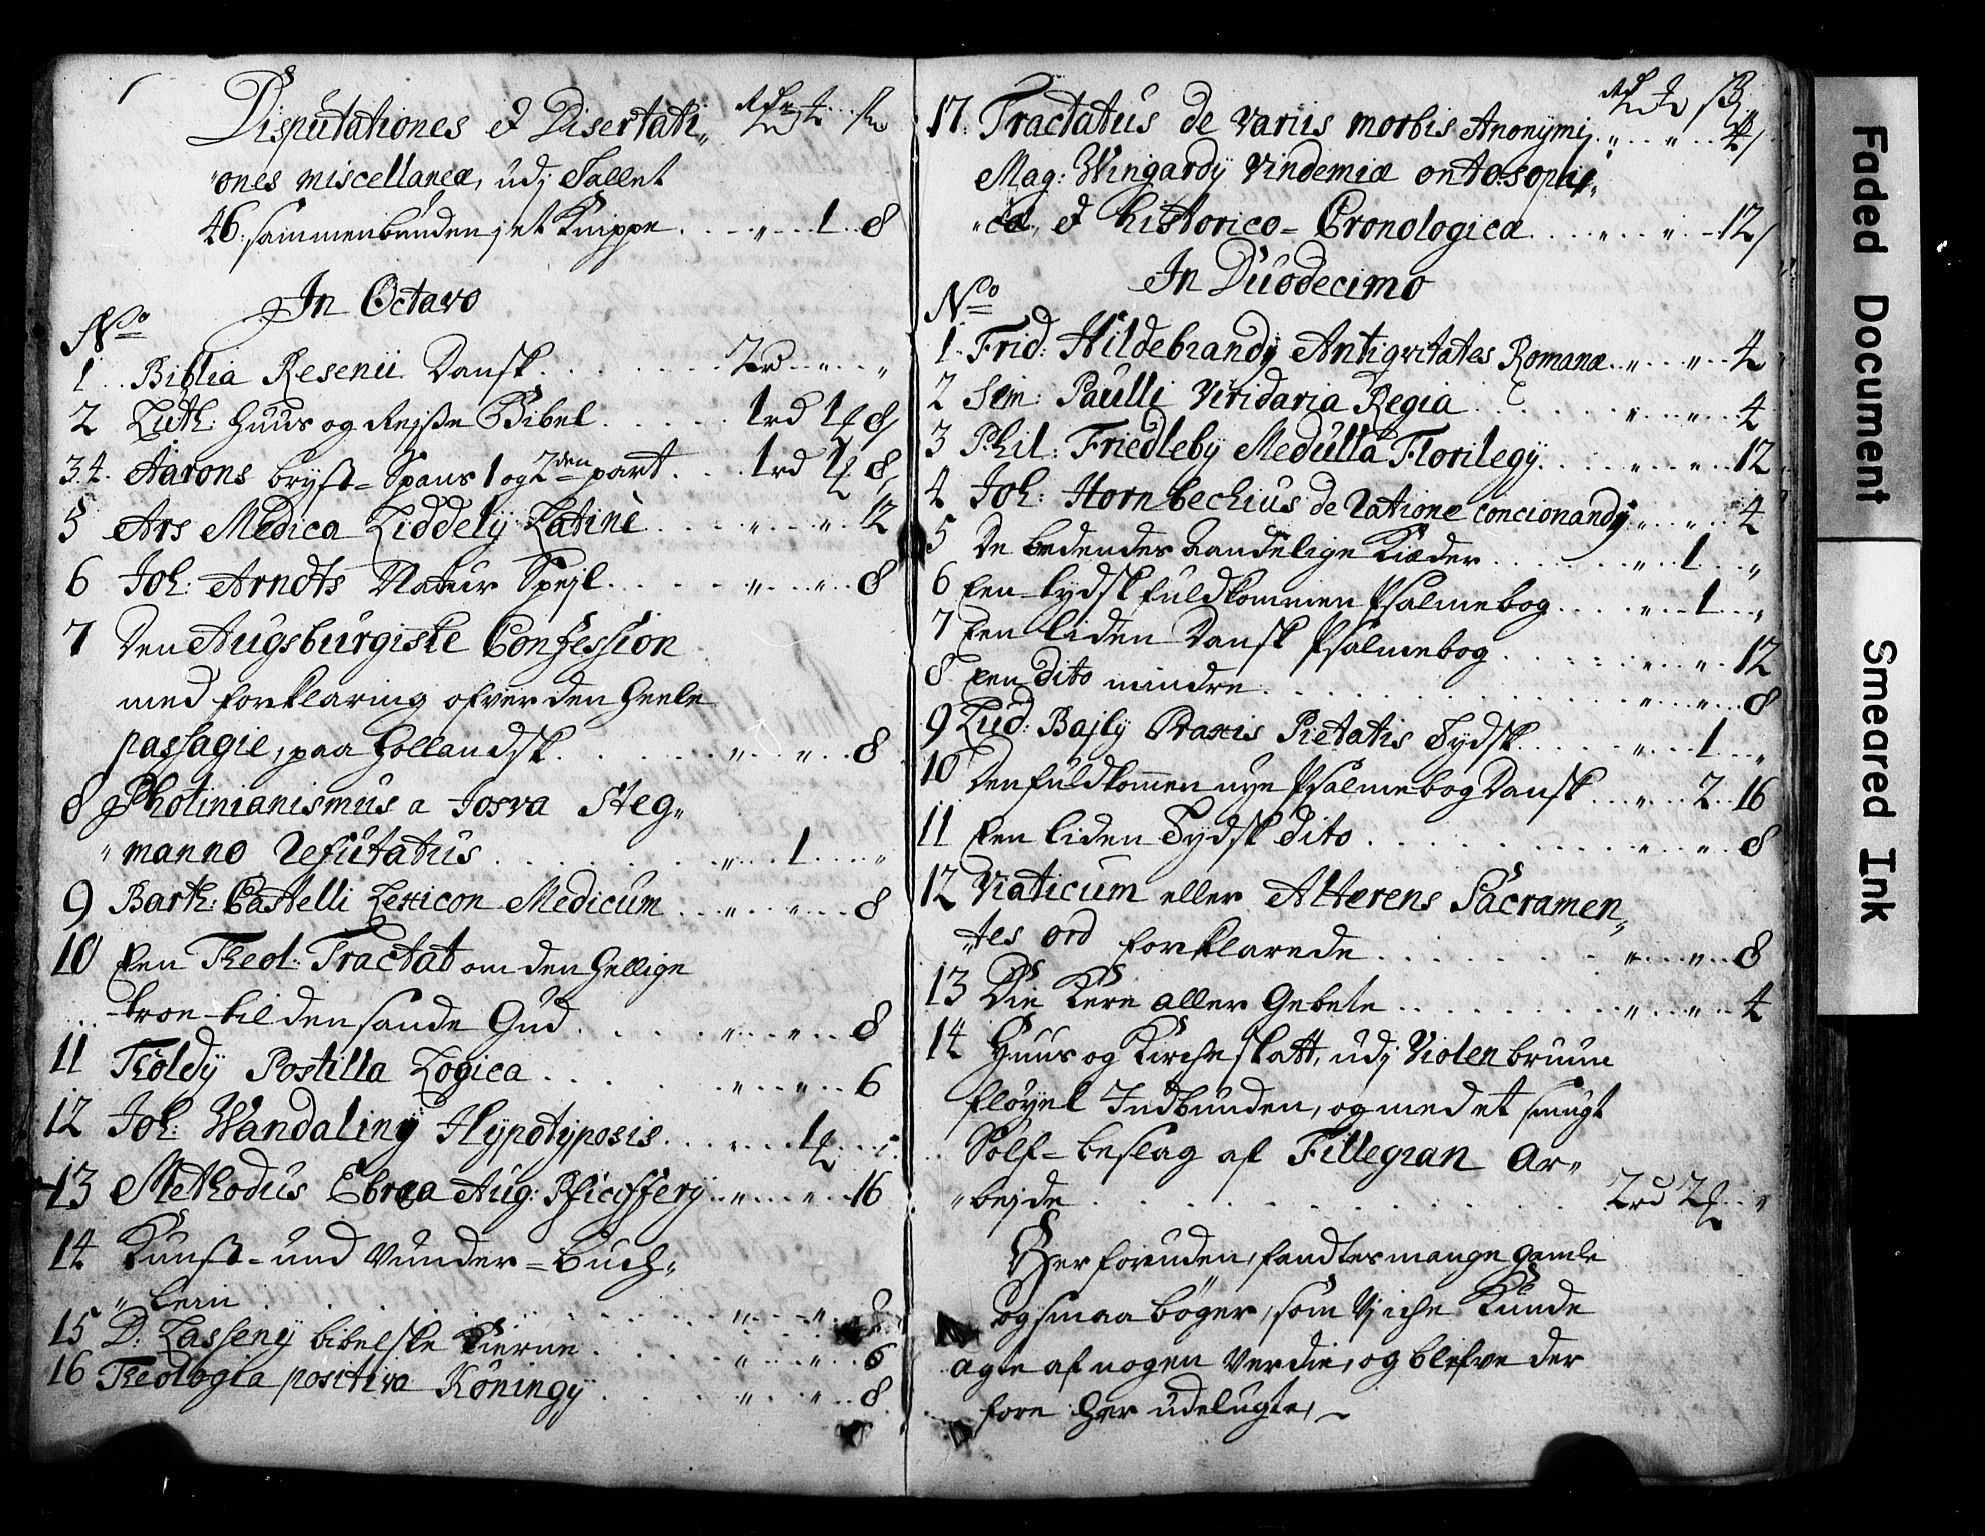 Disputationes & Disertati„
„ones miscellanea, udj Tallet
46: sammenbunden j et Knippe . . „ . . 1 . . 8
In Octavo
No
1 . . Biblia Resenii Dansk . . . 2rd . . „ . . „
2 Luth: Huus og Rejße Bibel . . . 1rd 1 8
3.4. Aarons bryst-Spans 1 og 2den part . . 1rd 1 8
5 Ars Medica Liddelÿ Latinè . . . „ . . „ . . 12
6 Joh: Arndts Natur Spejl . . . „ . . „ . . 8
7 Den Augsburgiske Confession
med forklaring ofver den Heele
passagie, paa Hollandsk . . . „ . . „ . . 8
8 Photinianismus a Josva Steg„
„manno Refutatus . . . „ . . 1 . . „
9 Barth: Castelli Lexicon Medicum . . „ . . „ . . 8
10 Een Theol: Tractat om den Hellige
troe til den sande Gud . . . „ . . „ . . 8
11 Koldÿ Postilla Logica . . . „ . . „ . . 6
12 Joh: Wandalinÿ Hypotyposis . . . „ . . 1
13 Methodus Ebræa Aug: Pfeifferÿ . . „ . . „ . . 16
14 Kunst- und Wunder-Buch„
„lein . . . „ . . „
15 D: Lassenÿ bibelske Kierne . . . „ . . „ . . 6
16 Theologia positiva Köningÿ . . . „ . . „ . . 8
17. Tractatus de variis morbis Anonymi . . „ . . „ . . 4
Mag: Wingardÿ Vindemiæ ontosophi„
„cæ, & historico-Cronologicæ . . . „ . . „ . . 12
In Duodecimo
No
1. Frid: Hildebrandÿ Antiqvitates Romanæ . . „ . . „ . . 4
2 Sim: Paulli Viridaria Regia . . . „ . . „ . . 4
3 Phil: Friedlebÿ Medulla Florilegÿ . . . „ . . „ . . 12
4 Joh: Hornbechius de Ratione concionandÿ . . „ . . „ . . 4
5 De bedendes Aandelige Kiæder . . . „ . . 1 . . „
6 Een tydsk fuldkommen Psalmebog . . . „ . . 1 . . „
7 Een liden Dansk Psalmebog . . . „ . . „ . . 12
8 Een dito mindre . . . „ . . „ . . 8
9 Lud: Bajlÿ Praxis Pietatis Tydsk . . . „ . . 1 . . „
10 Den fuldkommen nye Psalmebog Dansk . . . „ . . 2 . . 16
11 Een liden Tydsk dito . . . „ . . „ . . 8
12 Viaticum eller Alterens Sacramen„
„tes ord forklarede . . . „ . . „ . . 8
13 Die Kern aller Gebete . . . „ . . „ . . 4
14 Huus og Kirche skatt, udj Violen bruun
fløyel Indbunden, og med et smugt
Sölf-beslag af Fillegran Ar„
„bejde . . . 2rd 2 . . „
Her foruden, fandtes mange gamle
og smaa bøger, som Vj iche Kunde
agte af nogen Verdie, og blefve der
fore her udelugte, ~
Faded Document
Smeared Ink